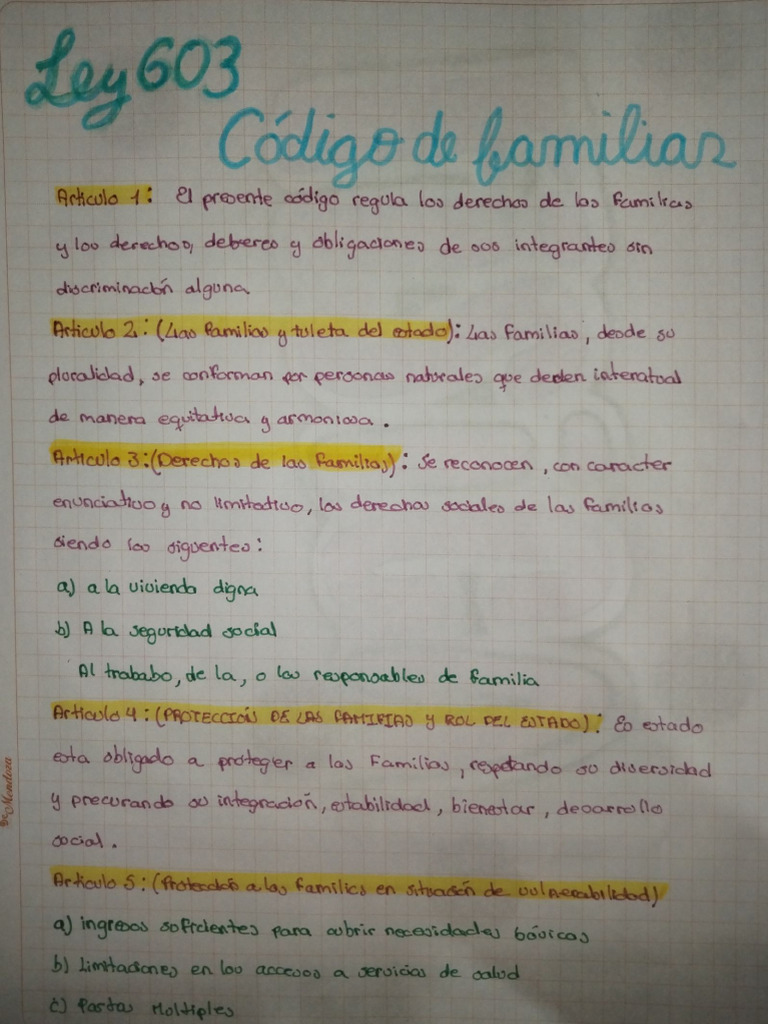 Ley 603
Código de familias
Articulo 1: El presente código regula los derechos de las familias
y los derechos, deberes y obligaciones de sus integrantes sin
discriminación alguna
Articulo 2: (Las familias y tuleta del estado): Las familias, desde su
pluralidad, se conforman por personas naturales que deden interatual
de manera equitativa y armoniosa.
Articulo 3: (Derechos de las familias): Se reconocen, con caracter
enunciativo y no limitativo, los derechos sociales de las familias
siendo los siguentes:
a) a la vivienda digna
b) A la seguridad social
Al trababo, de la, o los responsables de familia
Articulo 4: (PROTECCIÓN DE LAS FAMIFIAS Y ROL DEL ESTADO): Es estado
esta obligado a protegier a las Familias, respetando su diversidad
y precurando su integración, estabilidad, bienestar, desarrollo
social.
Articulo 5: (Protección a las familias en situación de vulnerabilidad)
a) ingresos suficientes para cubrir necesidades básicas
b) Limitaciones en los accesos a servicios de salud
c) Partos Multiples
Mendoza